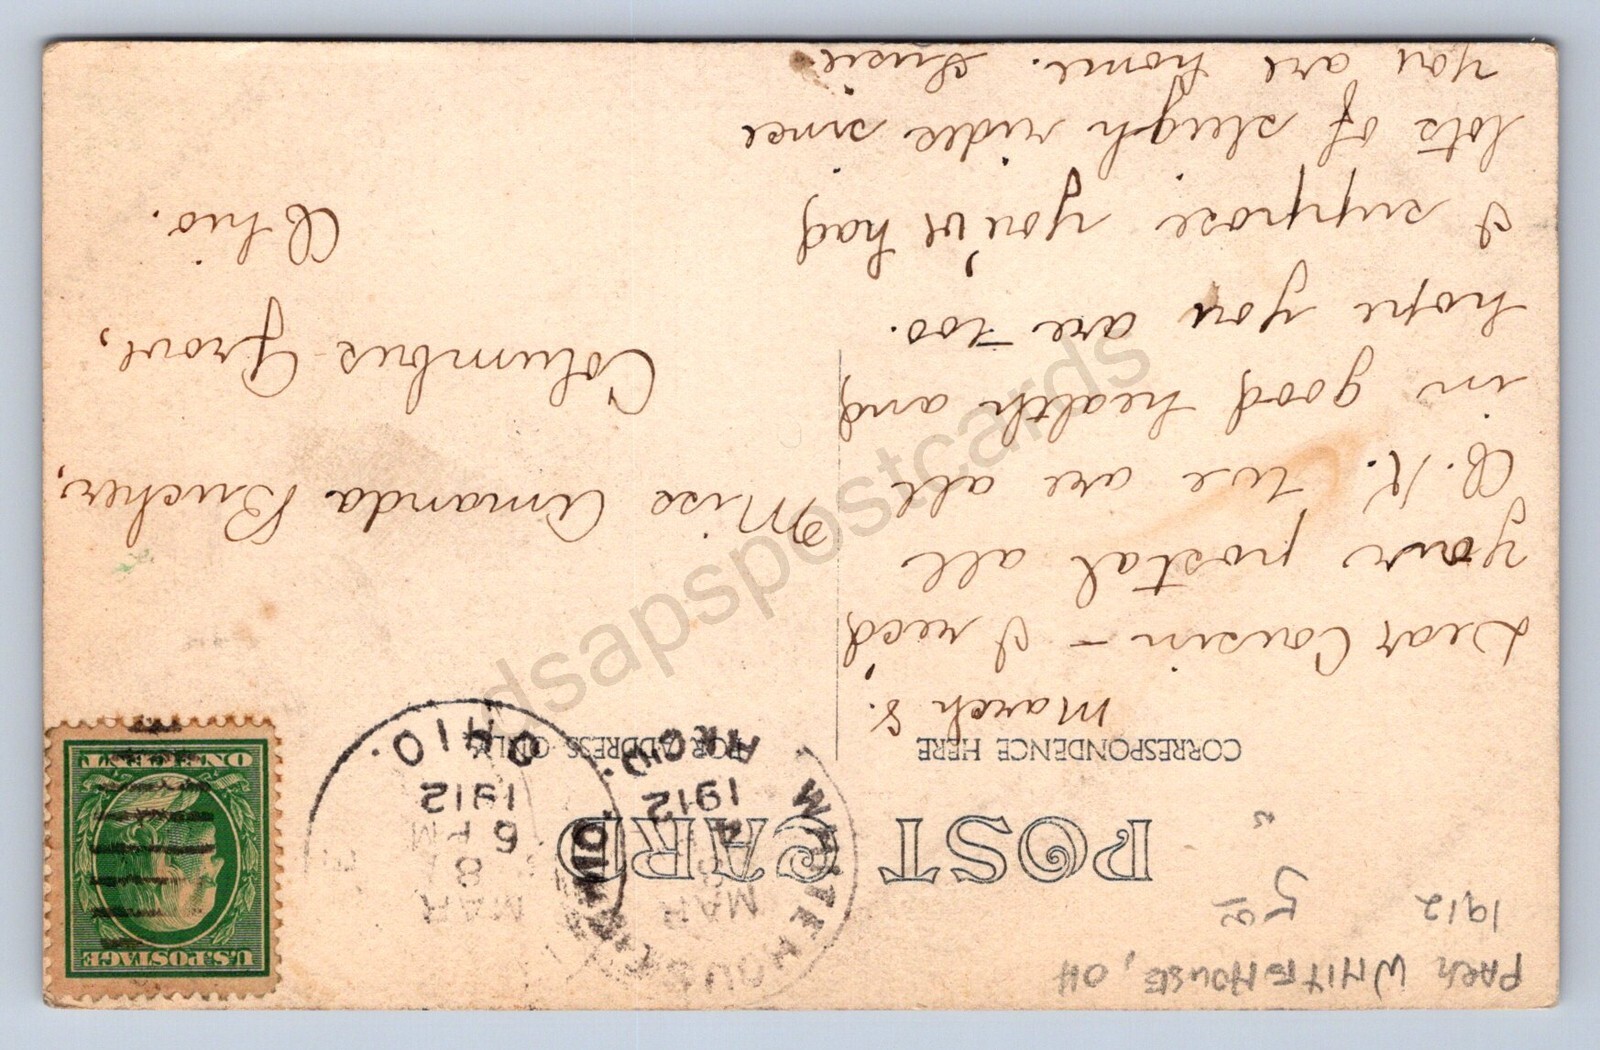 PARK WHITEHOUSE, OH
1912
5 00
POST CARD
CORRESPONDENCE HERE
FOR ADDRESS ONLY
March 8.
Dear Cousin - I rec'd
your postal all
O.K. We are all
in good health and
hope you are too.
I suppose you've had
lots of sleigh rides since
you are home. Susie.
Miss Amanda Bucher,
Columbus Grove,
Ohio.
WHITEHOUSE
MAR
8
6 PM
1912
OHIO.
MAR
1912
REC'D.
U.S. POSTAGE
ONE CENT
dsapspostcards